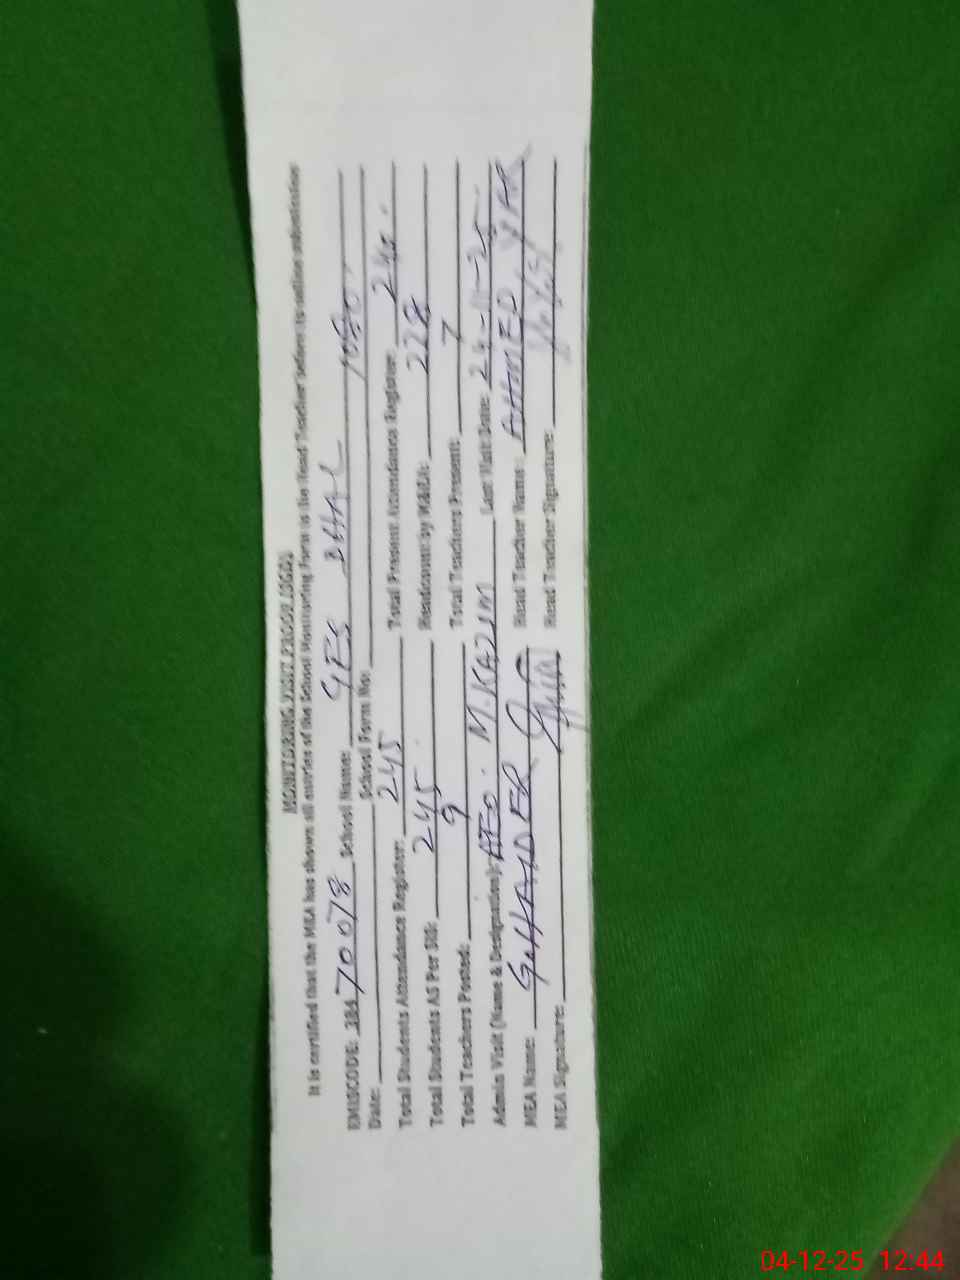 MONITORING VISIT PROOF (OGD)
It is certified that the MEA has shown all entries of the School Monitoring Form to the Head Teacher before its online submission
EMISCODE: 384 70078 School Name: GES DHAL
Date: School Form No:
Total Students Attendance Register: 245 Total Present Attendance Register: 240
Total Students AS Per SIS: 245 Headcount by MEA: 228
Total Teachers Posted: 9 Total Teachers Present: 7
Admin Visit (Name & Designation): AEO. M.KAZIM Last Visit Date: 24-11-25
MEA Name: G.HAIDER Head Teacher Name: AHMED YAR
MEA Signature: Head Teacher Signature:
04-12-25 12:44